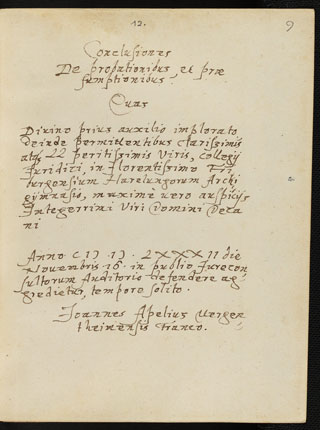 12.
9
Conclusiones
De probationibus, et præ
sumptionibus.
Quas
Divino prius auxilio implorato
deinde permittentibus Clarissimis
atq; peritissimis Viris, Collegij
Juridici, in Florentissimo Fri
burgensium Harelungorum Archi
gymnasio, maximè vero auspicijs
Integerrimi Viri Domini Deca
ni
Anno die
Novembris 16. in publio Jurecon
sultorum Auditorio defendere ag,
gredietur, tempore solito.
Joannes Apelius
theimensis Franco.